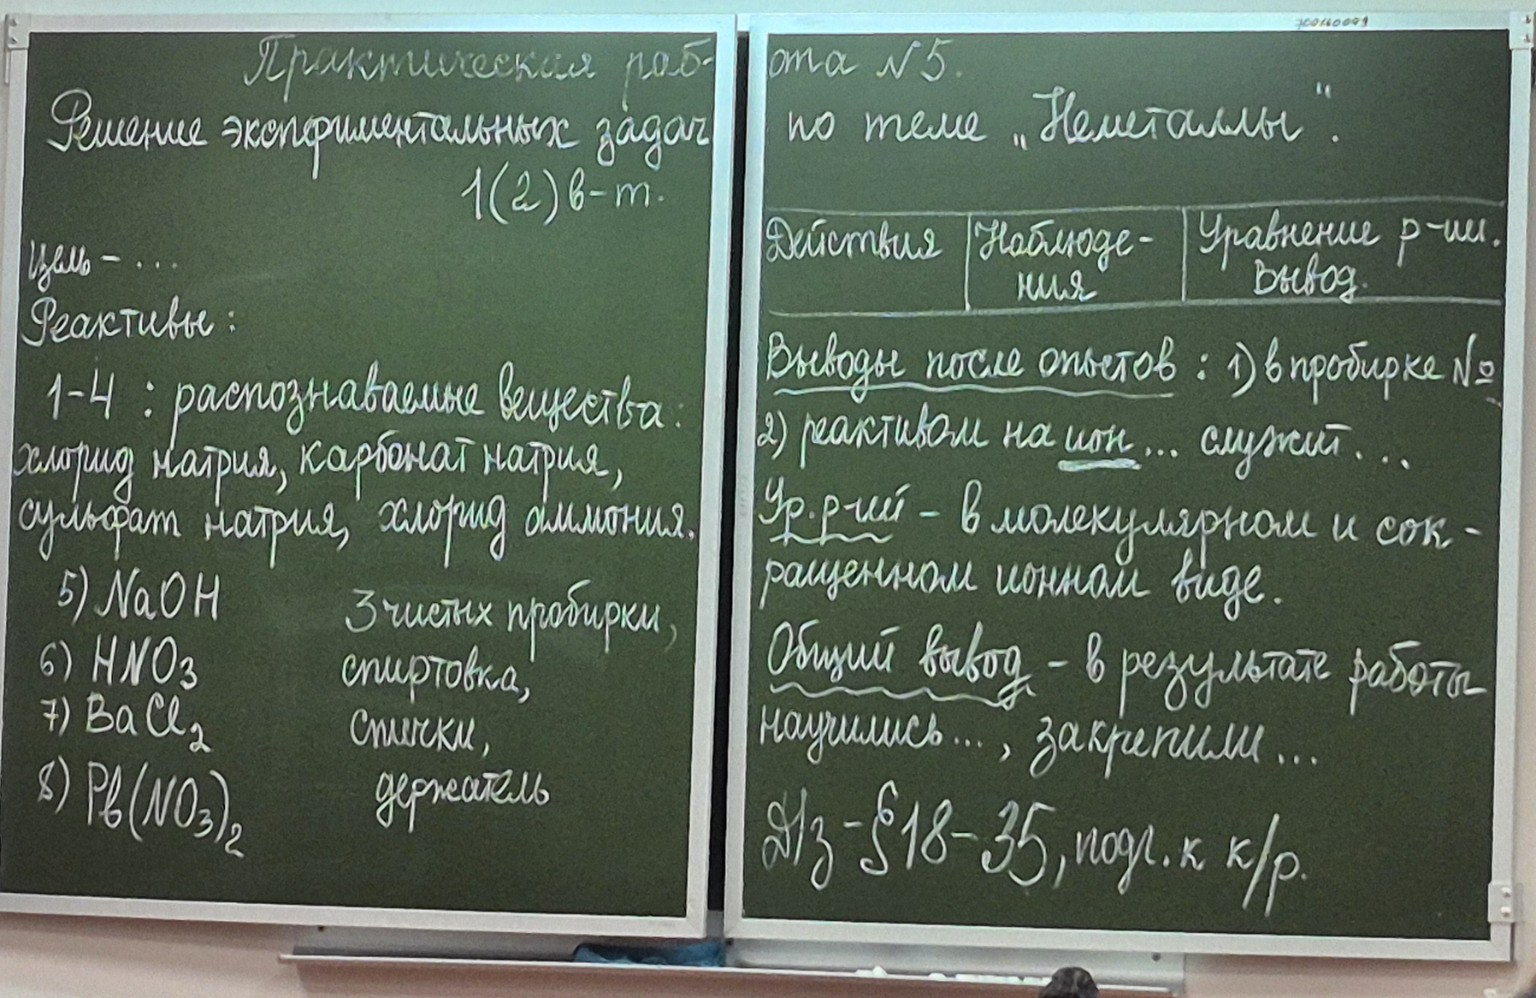 Практическая раб-
Решение экспериментальных задач
1(2) в-т.
Цель - ...
Реактивы:
1-4 : распознаваемые вещества:
хлорид натрия, карбонат натрия,
сульфат натрия, хлорид аммония.
5) NaOH
6) HNO3
7) BaCl2
8) Pb(NO3)2
3 чистых пробирки,
спиртовка,
спички,
держатель
700160099
ота N5.
по теме „Неметаллы".
Действия
Наблюде-
ния
Уравнение р-ии.
Вывод.
Выводы после опытов : 1) в пробирке №
2) реактивом на ион ... служит ...
Ур. р-ий - в молекулярном и сок-
ращенном ионном виде.
Общий вывод - в результате работы
научились ... , закрепили ...
Д/з - § 18-35, подг. к к/р.